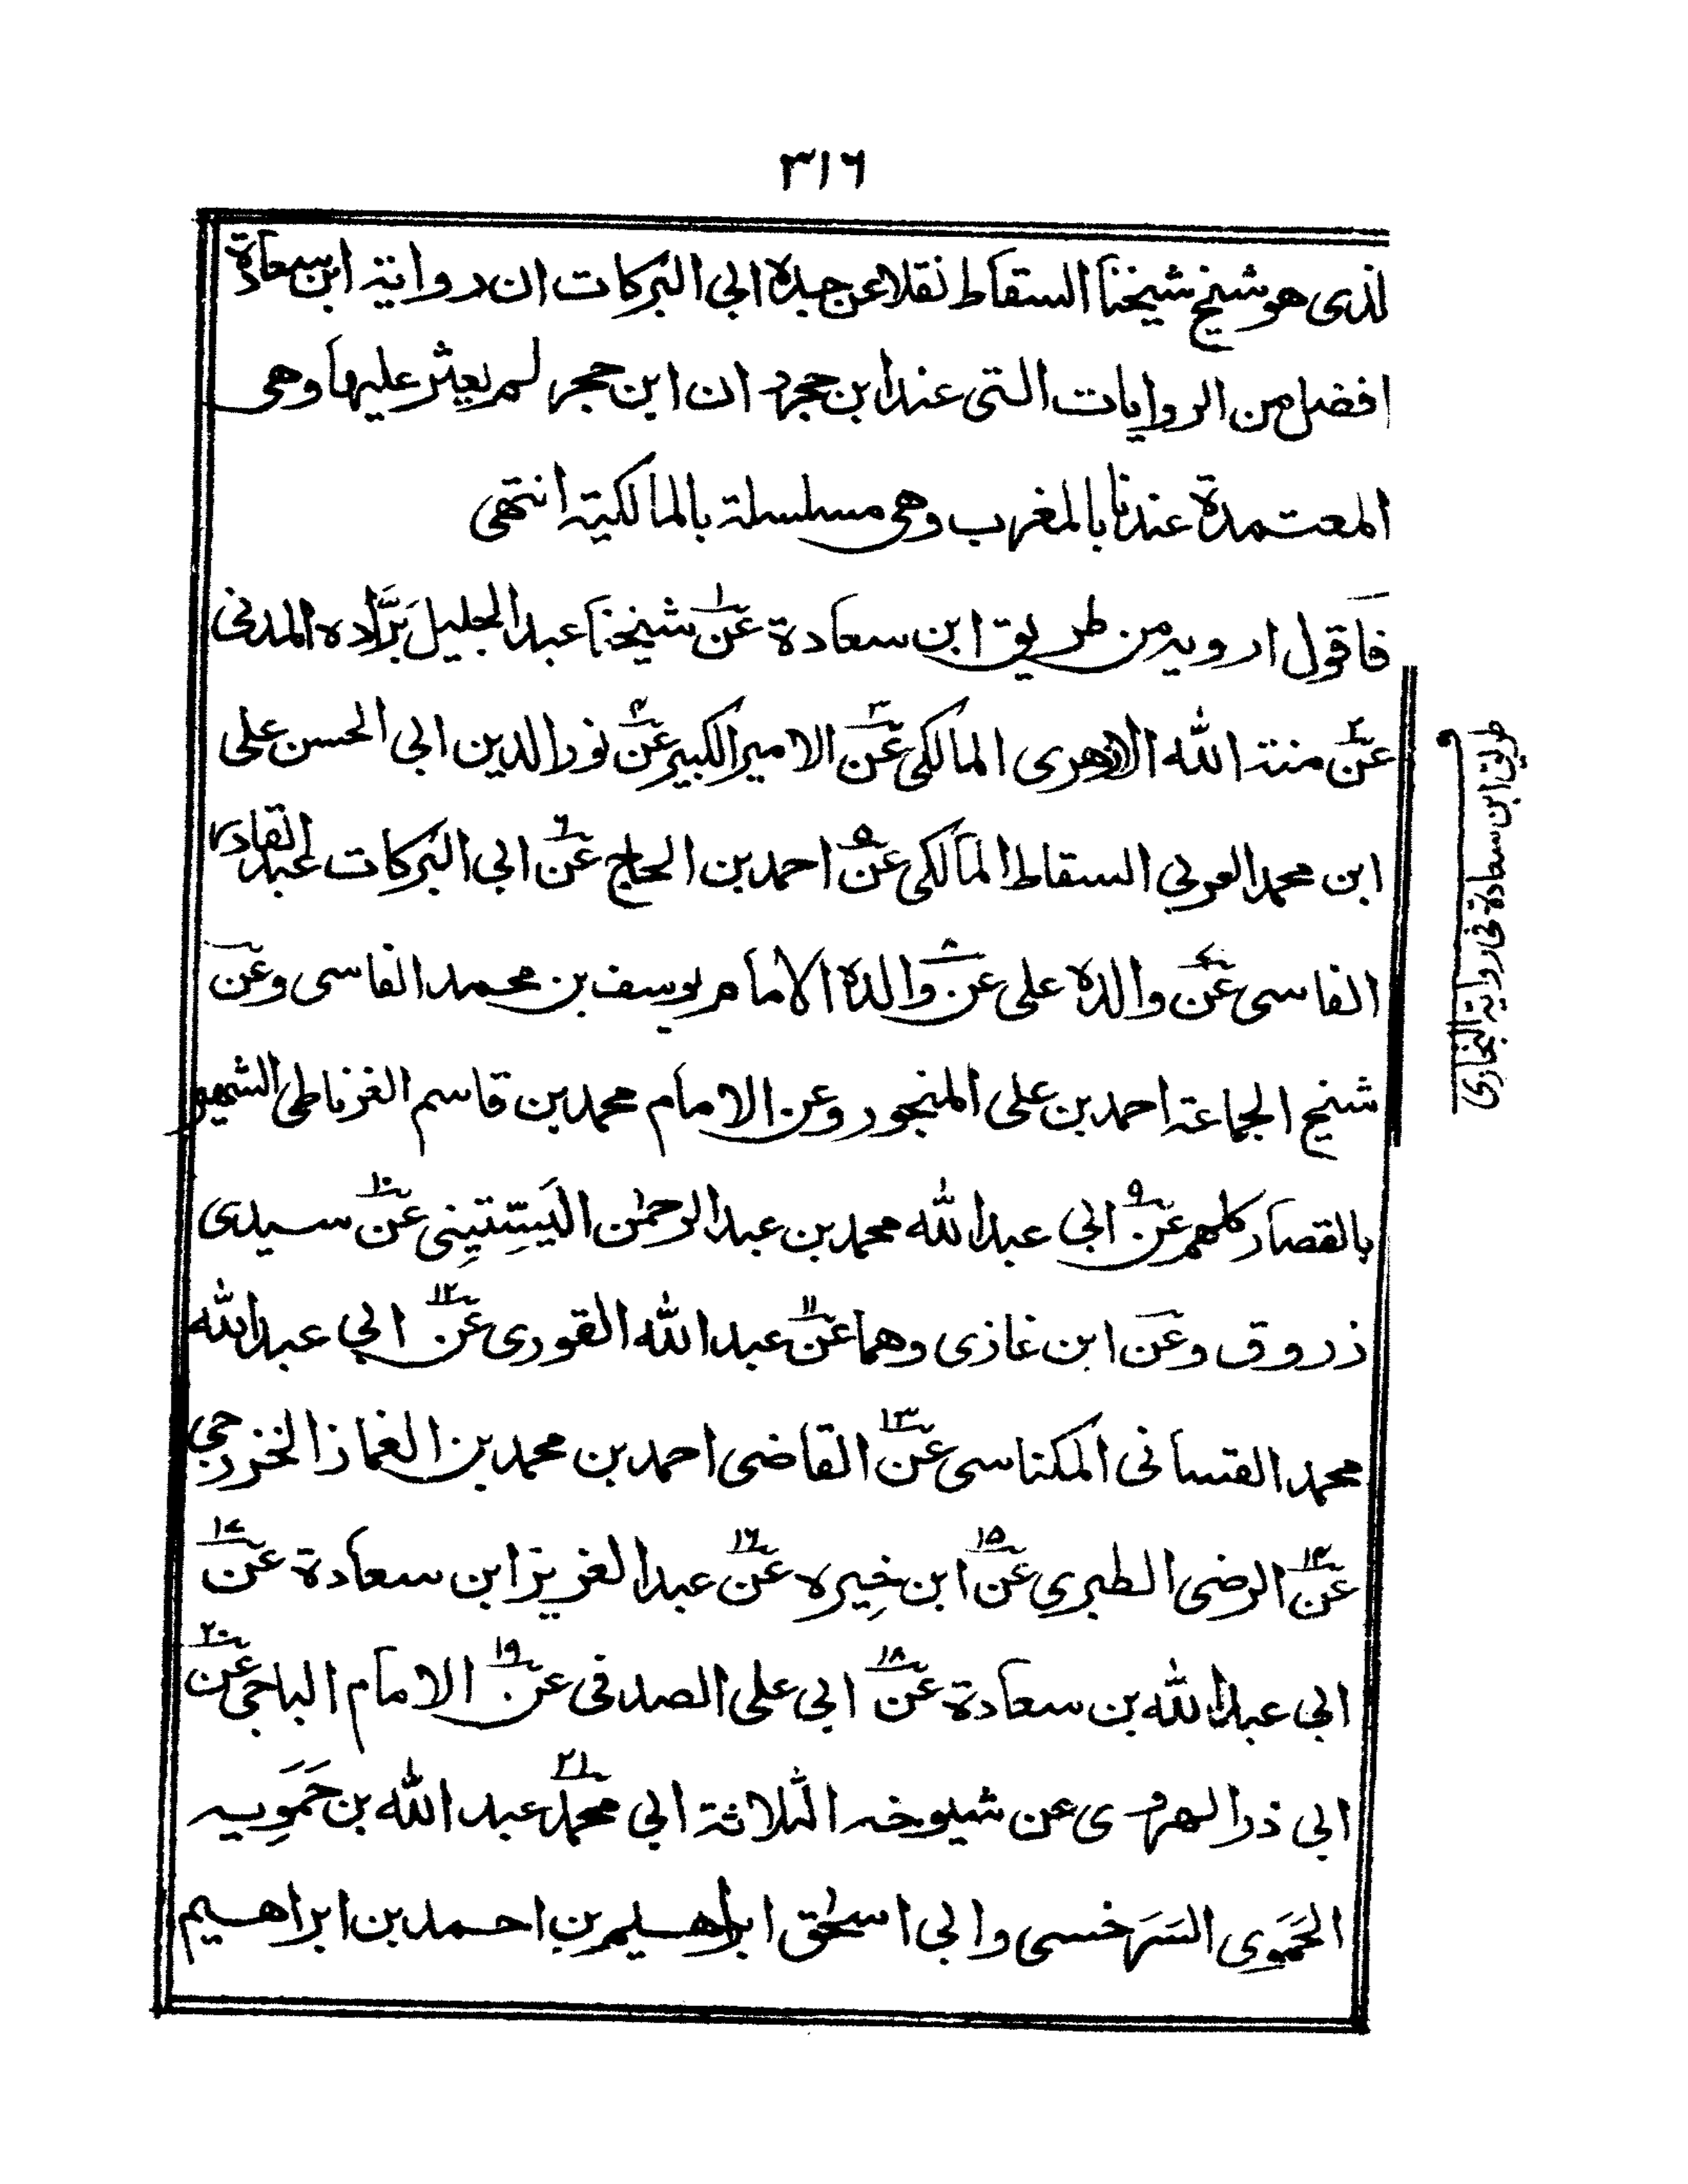 ٣١٦
لذى هو شيخ شيخنا السقاط نقلا عن جده ابى البركات ان رواية ابن سعادة
افضل من الروايات التى عند ابن حجر و ان ابن حجر لم يعثر عليها وهى
المعتمدة عندنا بالمغرب وهى مسلسلة بالمالكية انتهى
فاقول ارويه من طريق ابن سعادة عن١ شيخنا عبد الجليل برَّاده المدنى
عن٢ منة الله الازهرى المالكى عن٣ الامير الكبير عن٤ نور الدين ابى الحسن على
ابن محمد العربى السقاط المالكى عن٥ احمد بن الحاج عن٦ ابى البركات عبد القادر
الفاسى عن٧ والده على عن٨ والده الامام يوسف بن محمد الفاسى وعن
شيخ الجماعة احمد بن على المنجور وعن الامام محمد بن قاسم الغرناطى الشهير
بالقصار كلهم عن٩ ابى عبد الله محمد بن عبد الرحمٰن اليَسِّتِينِى عن١٠ سيدى
زروق وعن ابن غازى وهما عن١١ عبد الله القورى عن١٢ ابى عبد الله
محمد الغسانى المكناسى عن١٣ القاضى احمد بن محمد بن الغماز الخزرجى
عن١٤ الرضى الطبرى عن١٥ ابن خِيره عن١٦ عبد العزيز ابن سعادة عن١٧
ابى عبد الله بن سعادة عن١٨ ابى على الصدفى عن١٩ الامام الباجى عن٢٠
ابى ذر الهروى عن شيوخه الثلاثة ابى محمد٢١ عبد الله بن حَمَوِيه
الحَمَوِى السَرَخسى وابى اسحٰق ابراهيم بن احمد بن ابراهيم
طريق ابن سعادة فى رواية البخارى